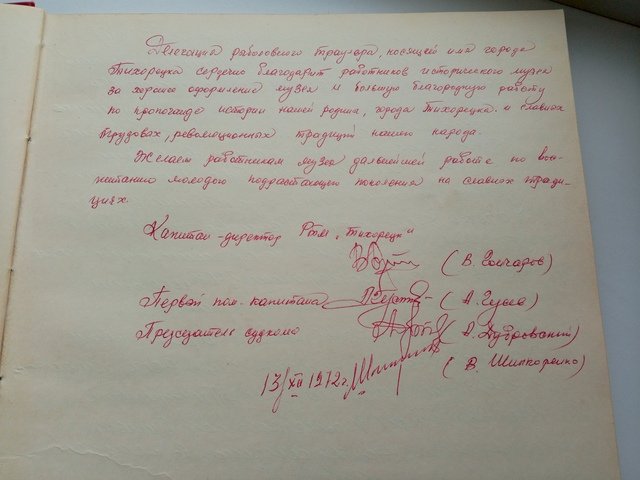 Делегация рыболовного траулера, носящей имя города
Тихорецка сердечно благодарит работников исторического музея
за хорошее оформление музея и большую благородную работу
по пропаганде истории нашей родины, города Тихорецка и славных
трудовых, революционных традиций нашего народа.
Желаем работникам музея дальнейшей работе по вос-
питанию молодого подрастающего поколения на славных тради-
циях.
Капитан-директор Ртм "Тихорецк"
(В. Гончаров)
Первый пом. капитана (А. Гуща)
Председатель судкома (А. Дубровский)
13/XII 1972 г. (В. Шипкоренко)